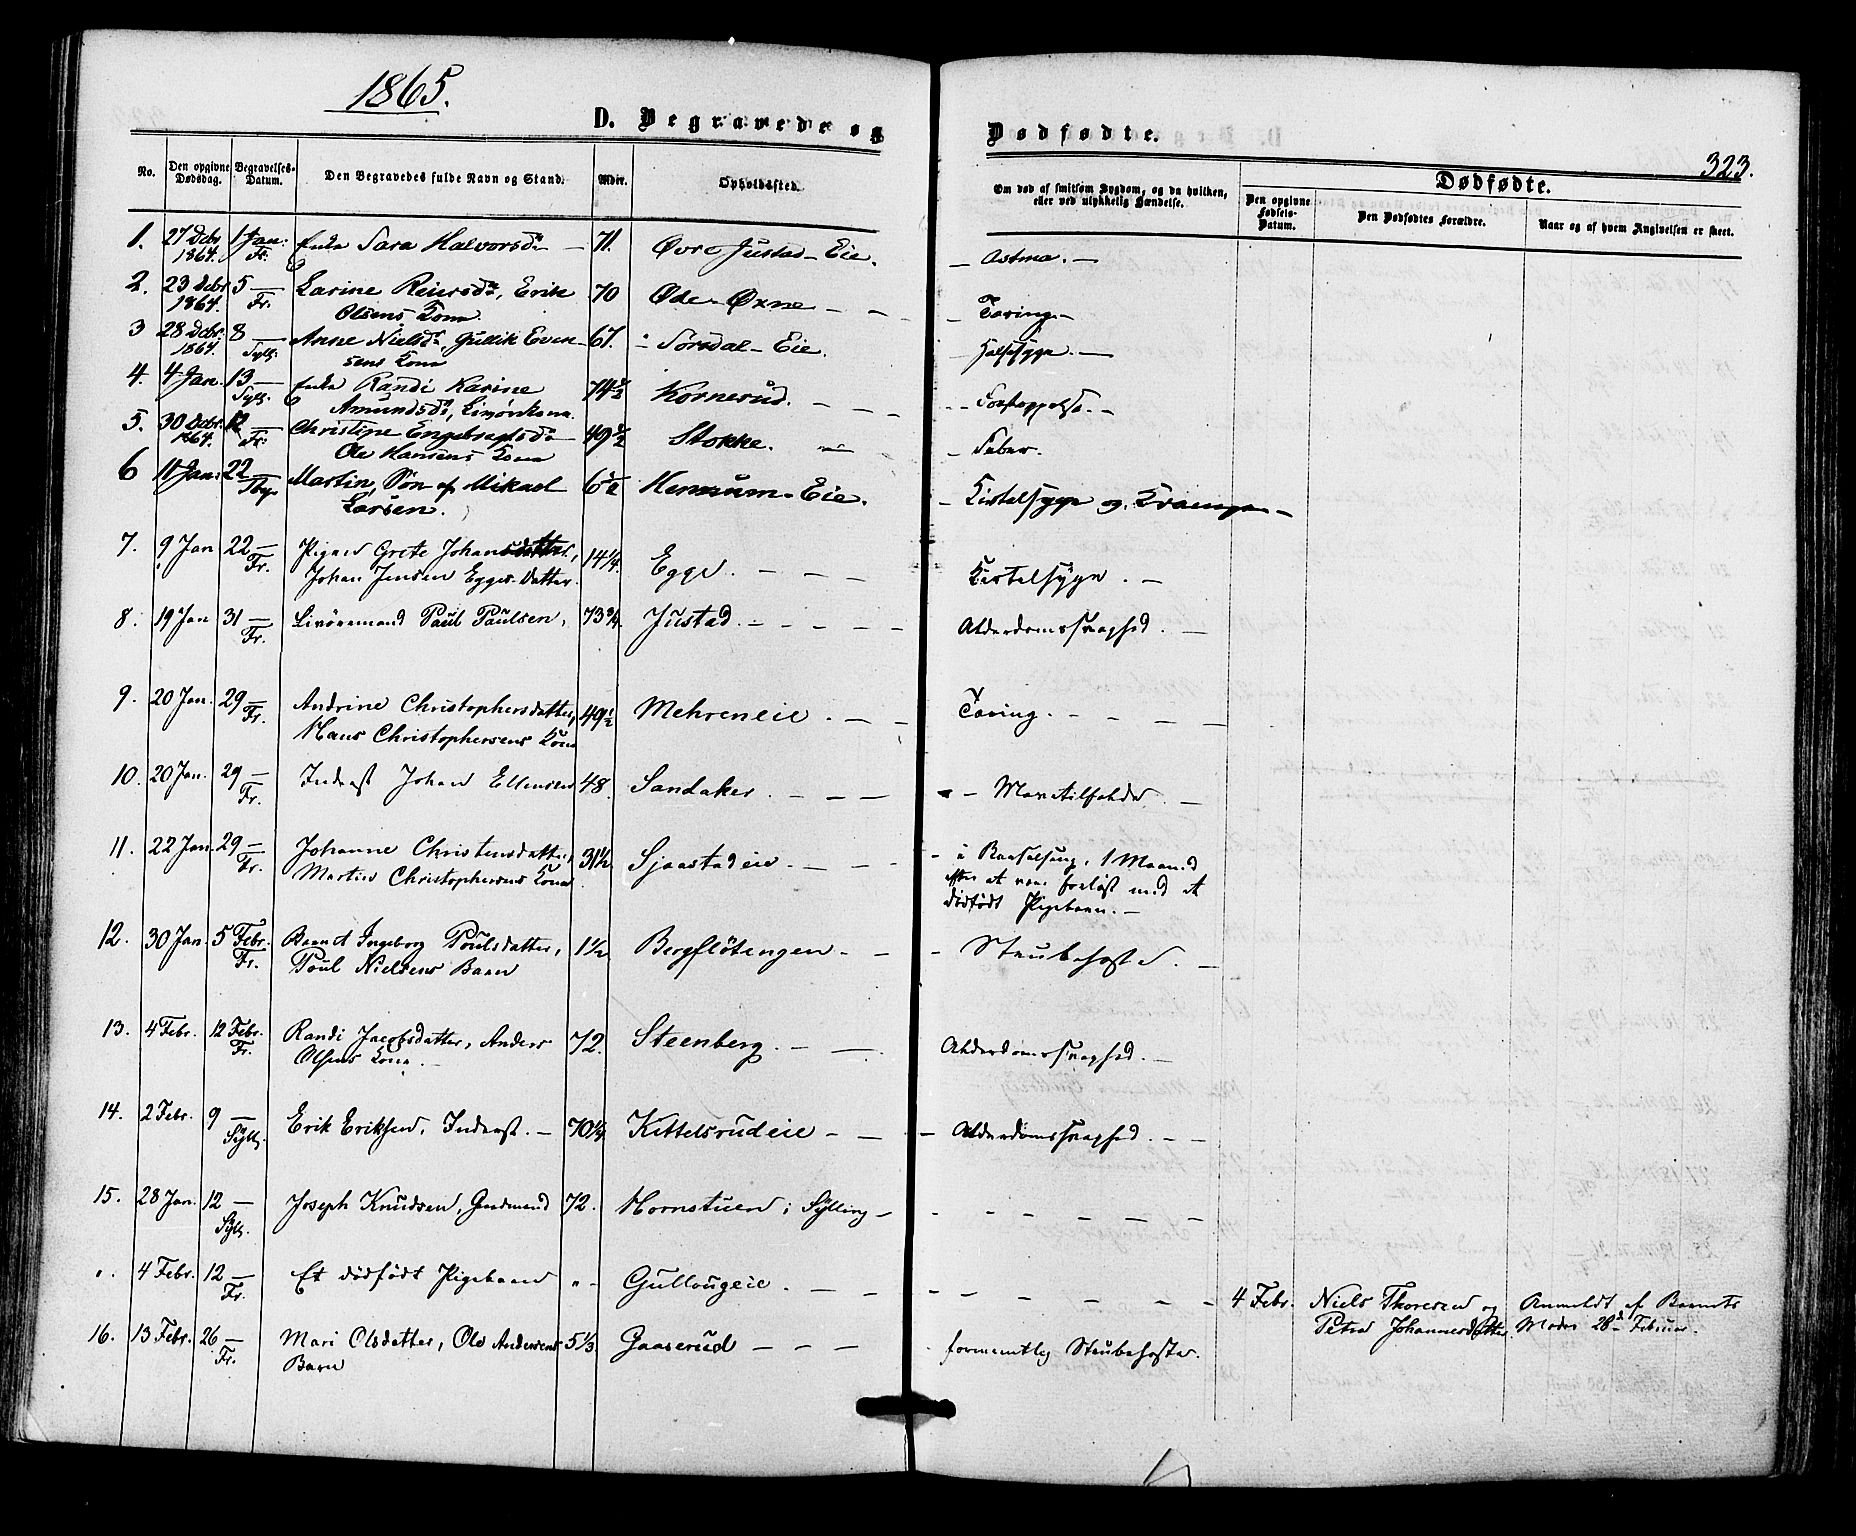 1865.
D. Begravede og
Dødfødte.
323.
No. Den opgivne Dødsdag. Begravelses-Datum. Den Begravedes fulde Navn og Stand. Alder. Opholdssted.
Om død af smitsom Sygdom, og da hvilken, eller ved ulykkelig Hændelse.
Dødfødte.
Den opgivne Fødsels-Datum. Den Dødfødtes Forældre. Naar og af hvem Angivelsen er skeet.
1. 27 Decbr 1 Jan: Enke Sara Halvorsdr — 71. Øvre Justad-Eie. — Astma. —
1864. Fr.
2. 23 Decbr 5 — Larine Reiersdr, Erik 70 Øde-Øxne — — — Tæring —
1864. Fr. Olsens Kone.
3 28 Decbr 8 — Anne Nielsdr, Gullik Even- 67. Sørsdal-Eie. Halssyge. —
1864. Sylg. sens Kone
4. 4 Jan. 13 — Enke Randi Karine 74½ Kornerud. — — — Forstoppelse. —
Sylg. Amundsdr, Livørekone.
5. 30 Decbr. 12 — Christine Engebregtsdr 49½ Stokke. — — Feber.
1864. Fr. Ole Hansens Kone
6 11 Jan: 22 Martin, Søn af Mikael 6½ Hennum-Eie. — Kirtelsyge og Krampe —
Larsen.
7. 9 Jan 22 — Pigen Grete Johansdatter, 14¼. Egge. — — — Kirtelsyge. —
Fr. Johan Jensen Egges Datter.
8. 19 Jan 31 — Livøremand Paul Paulsen, 73¾ Justad. — — — — Alderdomssvaghed. —
Fr.
9. 20 Jan. 29 — Andrine Christophersdatter, 49½ Mehreneie. — — Tæring. — — — —
Fr. Hans Christophersens Kone
10. 20 Jan. 29 — Inderst Johan Ellensen 48. Sandaker. — — — —
Fr.
11. 22 Jan. 29 — Johanne Christensdatter, 31½ Sjaastadeie. — — — — i Barselseng, 1 Maaned
Fr. Martin Christophersens Kone. efter at være forløst med et
dødfødt Pigebarn. —
12. 30 Jan. 5 Febr. Barnet Ingeborg Poulsdatter, 1½ Bergflötingen — — — Strubehoste. —
Fr. Poul Nielsens Barn
13. 4 Febr. 12 Febr. Randi Jacobsdatter, Anders 72. Steenberg. — — Alderdomssvaghed. —
Fr. Olsens Kone. —
14. 2 Febr. 9 — Erik Eriksen, Inderst. — 70¼ Kittelsrudeie — — — Alderdomssvaghed. — —
Sylg.
15. 28 Jan. 12 — Joseph Knudsen, Gaardmand 72. Hornstuen i Sylling — — — — — — —
Sylg.
". 4 Febr. 12 — Et dødfødt Pigebarn " - Gullougeie. — — — — — — — — 4 Febr. Niels Thoresen og Anmeldt af Barnets
Fr. Petra Johannesdatter. Moder 28de Februar.
16. 13 Febr. 26 — Mari Olsdatter, Ole Andersens 5⅓ Gaaserud — — — formentlig Strubehoste.
Fr. Barn